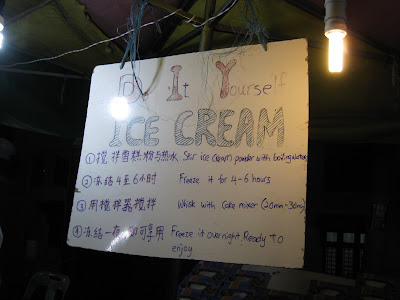 Do It Yourself
ICE CREAM
① 搅拌雪糕粉与热水 Stir ice cream powder with boiling water
② 冻结4至6小时 Freeze it for 4-6 hours
③ 用搅拌器搅拌 Whisk with cake mixer (20min-30min)
④ 冻结一夜,即可享用 Freeze it overnight. Ready To
enjoy